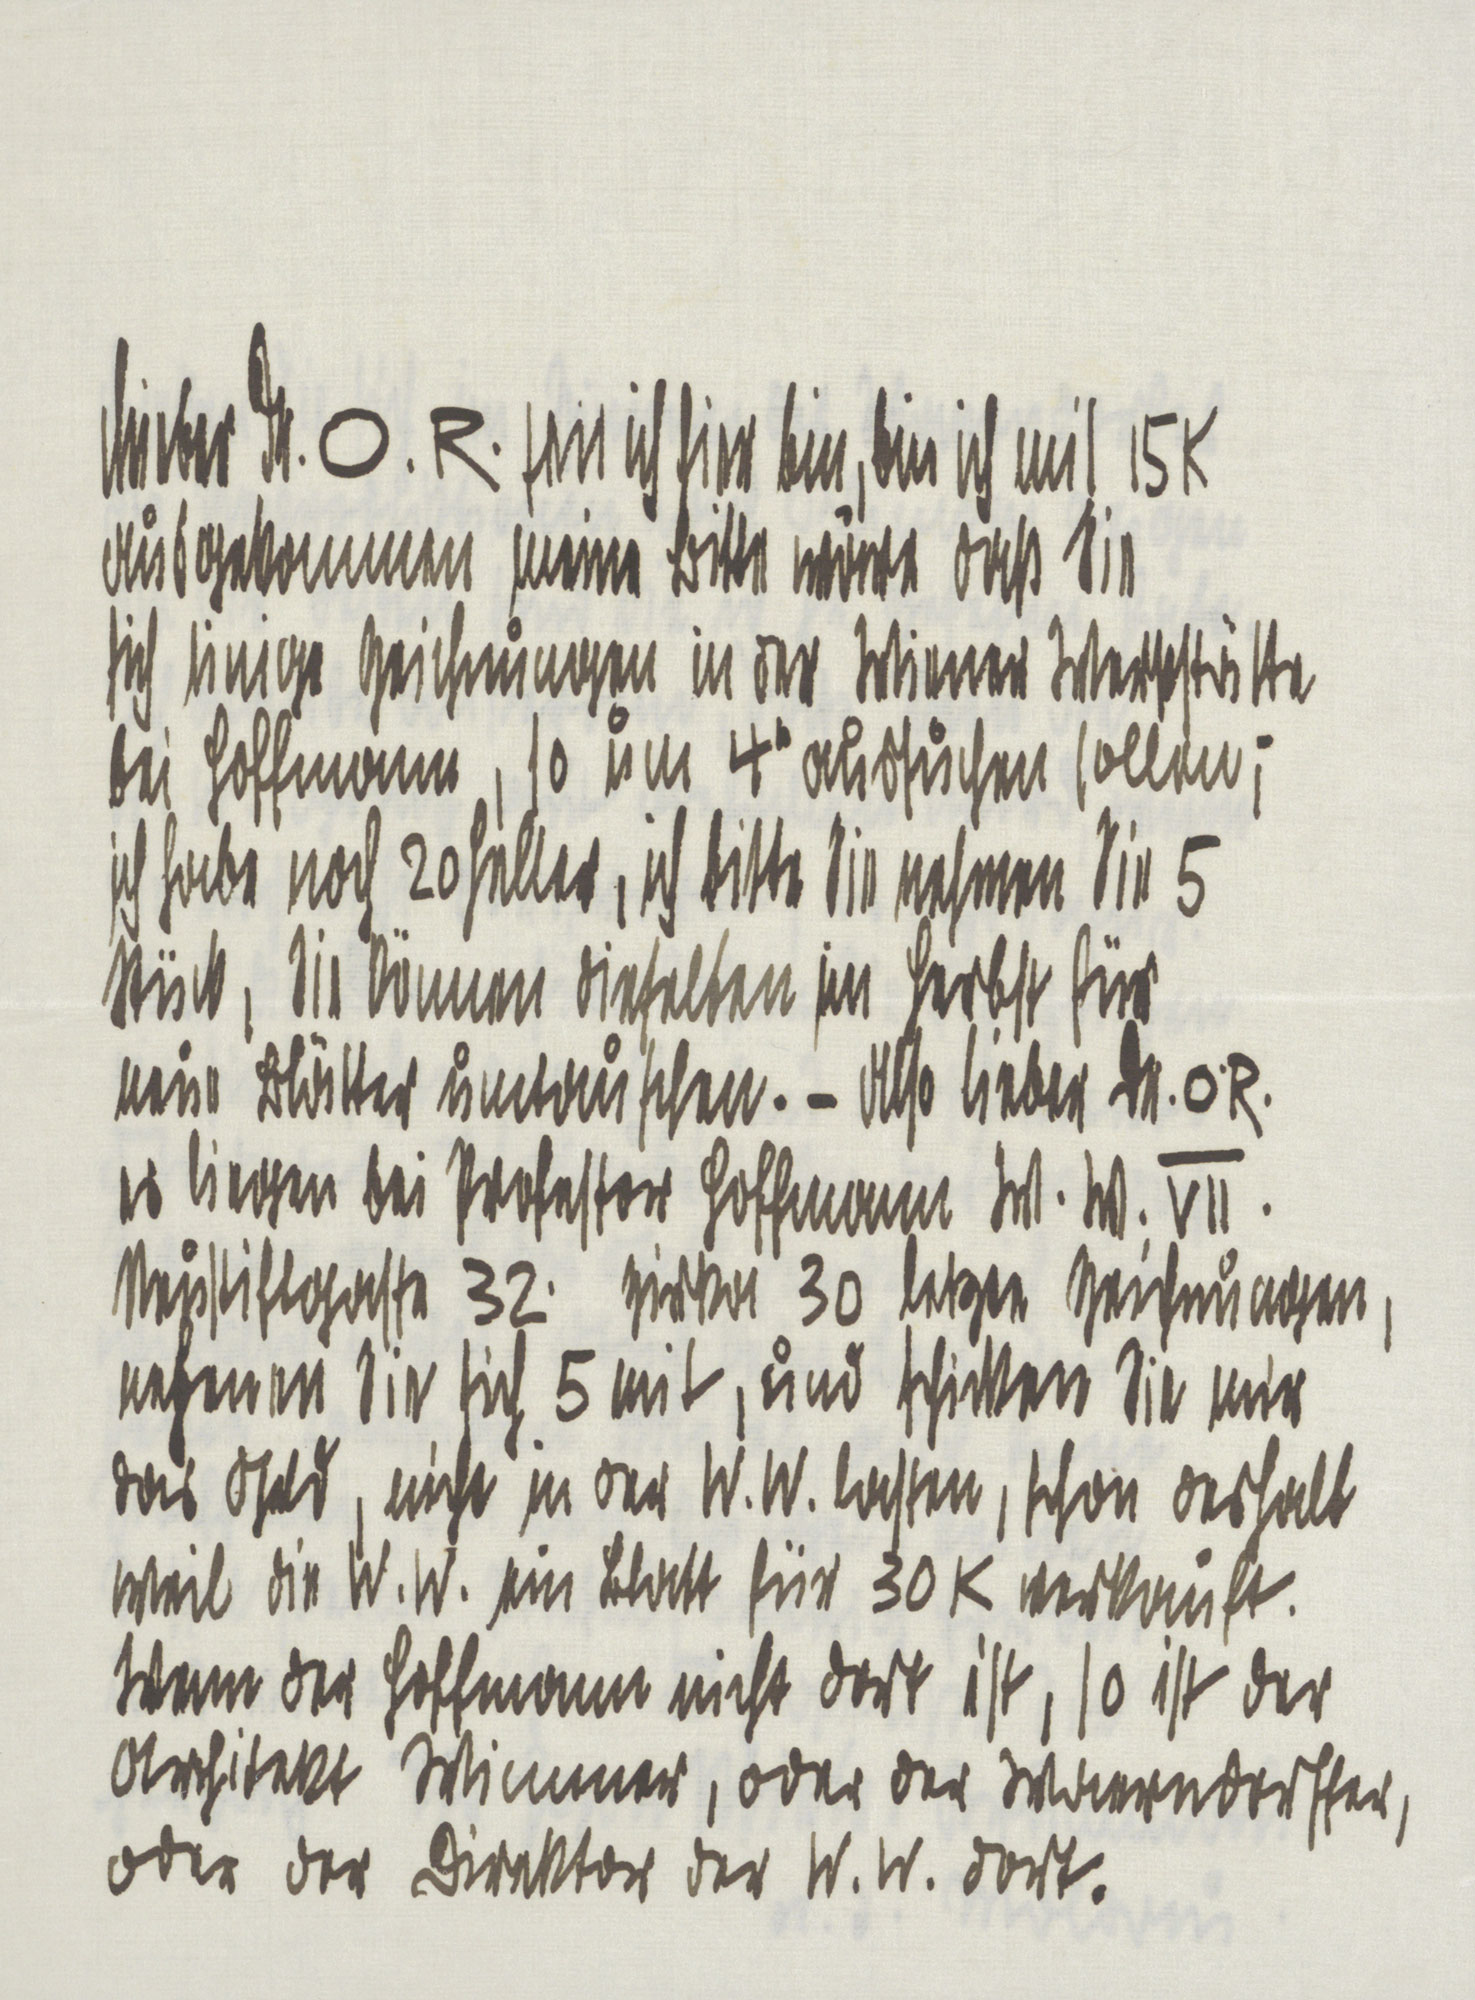 Lieber Dr. O. R. seit ich hier bin, bin ich mit 15 K
ausgekommen meine Bitte wäre daß Sie
sich einige Zeichnungen in der Wiener Werkstätte
bei Hoffmann, so um 4h aussuchen sollen;
ich habe noch 20 Heller, ich bitte Sie nehmen Sie 5
Stück, Sie können dieselben im Herbst für
neue Blätter umtauschen. – Also lieber Dr. O.R.
es liegen bei Professor Hoffmann W. W. VII.
Neustiftgasse 32. zirka 30 letzte Zeichnungen,
nehmen Sie sich 5 mit, und schicken Sie mir
das Geld, nicht in der W.W. lassen, schon deshalb
weil die W.W. ein Blatt für 30 K verkauft.
Wenn der Hoffmann nicht dort ist, so ist der
Architekt Wimmer, oder der Waerndorffer,
oder der Direktor der W.W. dort.